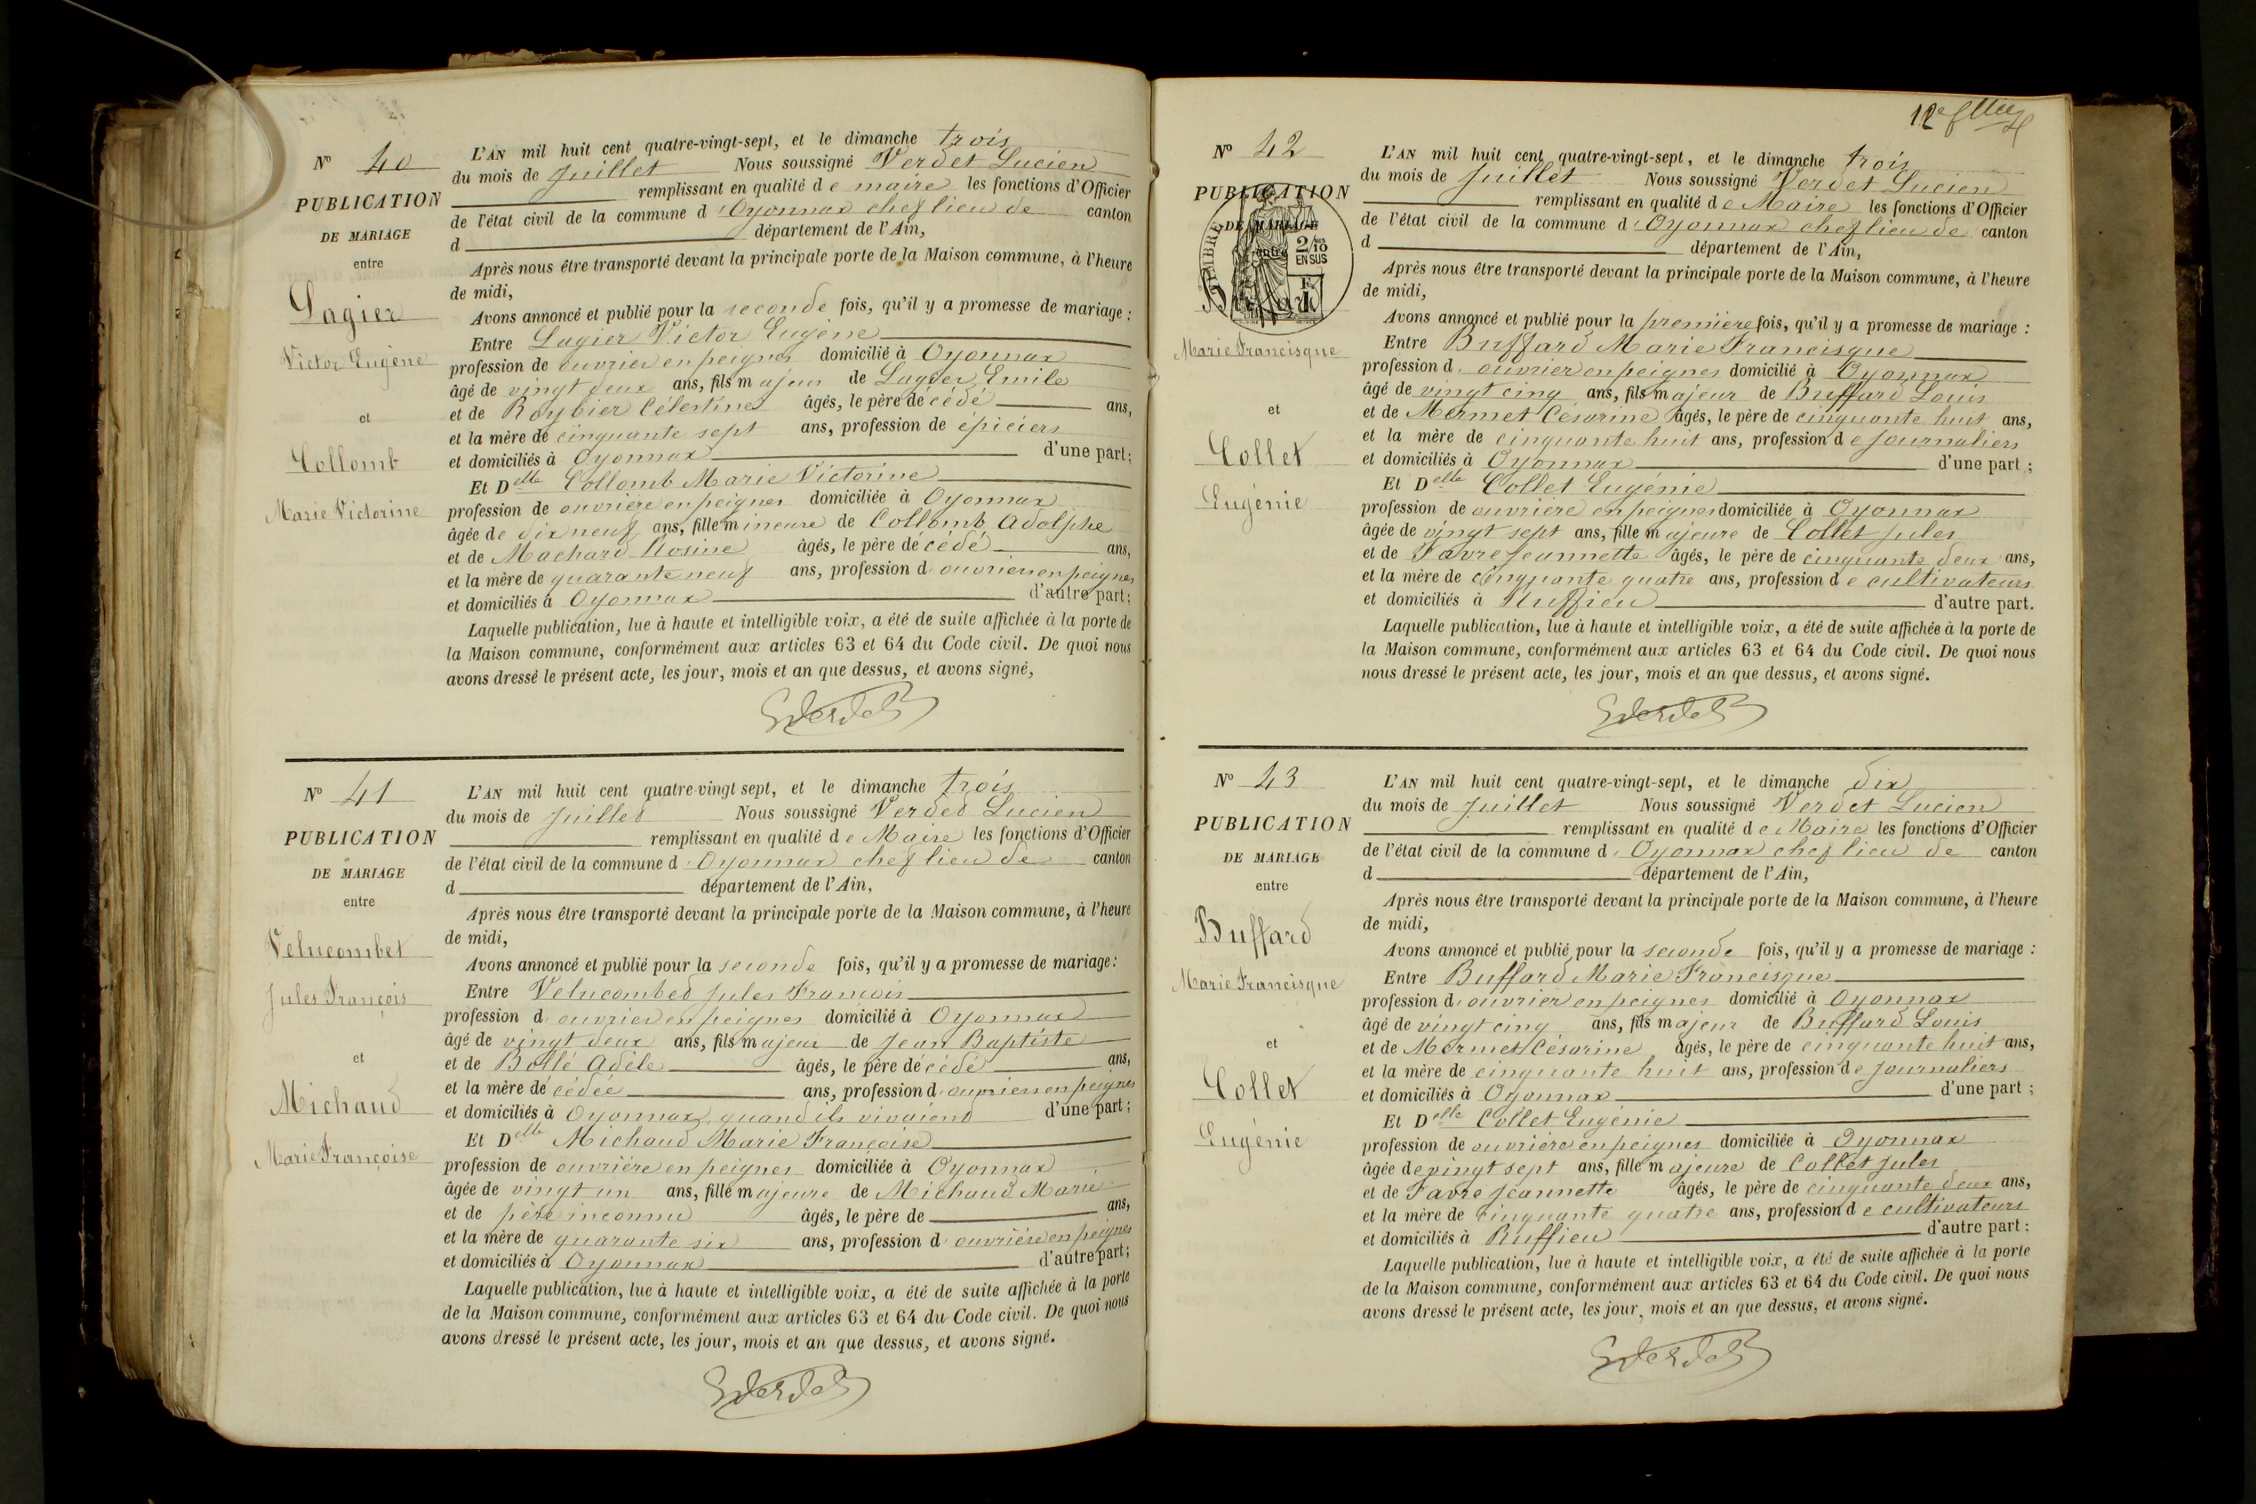 N° 40
PUBLICATION
DE MARIAGE
entre
Lagier
Victor Eugène
et
Collomb
Marie Victorine
L'AN mil huit cent quatre-vingt-sept, et le dimanche trois
du mois de Juillet Nous soussigné Verdet Lucien
remplissant en qualité de maire les fonctions d'Officier
de l'état civil de la commune d'Oyonnax chef lieu de canton
d département de l'Ain,
Après nous être transporté devant la principale porte de la Maison commune, à l'heure
de midi,
Avons annoncé et publié pour la seconde fois, qu'il y a promesse de mariage :
Entre Lagier Victor Eugène
profession de ouvrier en peignes domicilié à Oyonnax
âgé de vingt deux ans, fils majeur de Lagier Emile
et de Roybier Célestine âgés, le père décédé ans,
et la mère de cinquante sept ans, profession de épiciers
et domiciliés à Oyonnax d'une part ;
Et Delle Collomb Marie Victorine
profession de ouvrière en peignes domiciliée à Oyonnax
âgée de dix neuf ans, fille mineure de Collomb Adolphe
et de Machard Rosine âgés, le père décédé ans,
et la mère de quarante neuf ans, profession d'ouvriers en peignes
et domiciliés à Oyonnax d'autre part ;
Laquelle publication, lue à haute et intelligible voix, a été de suite affichée à la porte de
la Maison commune, conformément aux articles 63 et 64 du Code civil. De quoi nous
avons dressé le présent acte, les jour, mois et an que dessus, et avons signé,
LVerdet
N° 41
PUBLICATION
DE MARIAGE
entre
Velucombet
Jules François
et
Michaud
Marie Françoise
L'AN mil huit cent quatre-vingt sept, et le dimanche trois
du mois de Juillet Nous soussigné Verdet Lucien
remplissant en qualité de Maire les fonctions d'Officier
de l'état civil de la commune d'Oyonnax chef lieu de canton
d département de l'Ain,
Après nous être transporté devant la principale porte de la Maison commune, à l'heure
de midi,
Avons annoncé et publié pour la seconde fois, qu'il y a promesse de mariage :
Entre Velucombet Jules François
profession d'ouvrier en peignes domicilié à Oyonnax
âgé de vingt deux ans, fils majeur de Jean Baptiste
et de Bollé Adèle âgés, le père décédé ans,
et la mère décédée ans, profession d'ouvriers en peignes
et domiciliés à Oyonnax quand ils vivaient d'une part ;
Et Delle Michaud Marie Françoise
profession de ouvrière en peignes domiciliée à Oyonnax
âgée de vingt un ans, fille majeure de Michaud Marie
et de père inconnu âgés, le père de ans,
et la mère de quarante six ans, profession d'ouvrière en peignes
et domiciliés à Oyonnax d'autre part ;
Laquelle publication, lue à haute et intelligible voix, a été de suite affichée à la porte
de la Maison commune, conformément aux articles 63 et 64 du Code civil. De quoi nous
avons dressé le présent acte, les jour, mois et an que dessus, et avons signé.
LVerdet
12e
N° 42
PUBLICATION
DE MARIAGE
entre
TIMBRE
2/10
EN SUS
Buffard
Marie Francisque
et
Collet
Eugénie
L'AN mil huit cent quatre-vingt-sept, et le dimanche trois
du mois de Juillet Nous soussigné Verdet Lucien
remplissant en qualité de Maire les fonctions d'Officier
de l'état civil de la commune d'Oyonnax chef lieu de canton
d département de l'Ain,
Après nous être transporté devant la principale porte de la Maison commune, à l'heure
de midi,
Avons annoncé et publié pour la première fois, qu'il y a promesse de mariage :
Entre Buffard Marie Francisque
profession d'ouvrier en peignes domicilié à Oyonnax
âgé de vingt cinq ans, fils majeur de Buffard Louis
et de Mermet Césarine âgés, le père de cinquante huit ans,
et la mère de cinquante huit ans, profession de journaliers
et domiciliés à Oyonnax d'une part ;
Et Delle Collet Eugénie
profession de ouvrière en peignes domiciliée à Oyonnax
âgée de vingt sept ans, fille majeure de Collet Jules
et de Favre Jeannette âgés, le père de cinquante deux ans,
et la mère de cinquante quatre ans, profession de cultivateurs
et domiciliés à Ruffieu d'autre part.
Laquelle publication, lue à haute et intelligible voix, a été de suite affichée à la porte de
la Maison commune, conformément aux articles 63 et 64 du Code civil. De quoi nous
nous dressé le présent acte, les jour, mois et an que dessus, et avons signé.
LVerdet
N° 43
PUBLICATION
DE MARIAGE
entre
Buffard
Marie Francisque
et
Collet
Eugénie
L'AN mil huit cent quatre-vingt-sept, et le dimanche dix
du mois de Juillet Nous soussigné Verdet Lucien
remplissant en qualité de Maire les fonctions d'Officier
de l'état civil de la commune d'Oyonnax chef lieu de canton
d département de l'Ain,
Après nous être transporté devant la principale porte de la Maison commune, à l'heure
de midi,
Avons annoncé et publié pour la seconde fois, qu'il y a promesse de mariage :
Entre Buffard Marie Francisque
profession d'ouvrier en peignes domicilié à Oyonnax
âgé de vingt cinq ans, fils majeur de Buffard Louis
et de Mermet Césarine âgés, le père de cinquante huit ans,
et la mère de cinquante huit ans, profession de journaliers
et domiciliés à Oyonnax d'une part ;
Et Delle Collet Eugénie
profession de ouvrière en peignes domiciliée à Oyonnax
âgée de vingt sept ans, fille majeure de Collet Jules
et de Favre Jeannette âgés, le père de cinquante deux ans,
et la mère de cinquante quatre ans, profession de cultivateurs
et domiciliés à Ruffieu d'autre part ;
Laquelle publication, lue à haute et intelligible voix, a été de suite affichée à la porte
de la Maison commune, conformément aux articles 63 et 64 du Code civil. De quoi nous
avons dressé le présent acte, les jour, mois et an que dessus, et avons signé.
LVerdet